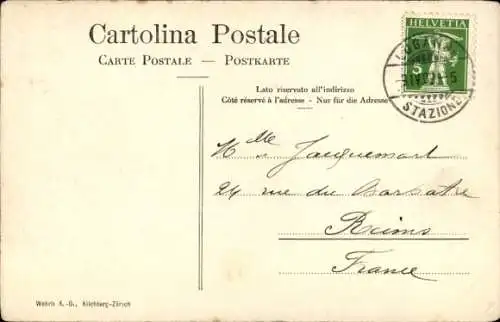 Cartolina Postale
CARTE POSTALE — POSTKARTE
Lato riservato all'indirizzo
Côté réservé à l'adresse - Nur für die Adresse
HELVETIA
5
LUGANO
STAZIONE
Mlle Jacquemart
24 rue du Barbatre
Reims
France
Wehrli A.-G., Kilchberg-Zürich